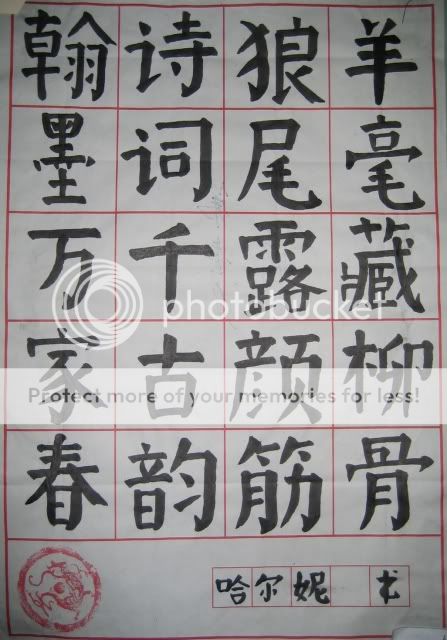 羊毫藏柳骨
狼尾露颜筋
诗词千古韵
翰墨万家春
哈尔妮 书
photobucket
Protect more of your memories for less!